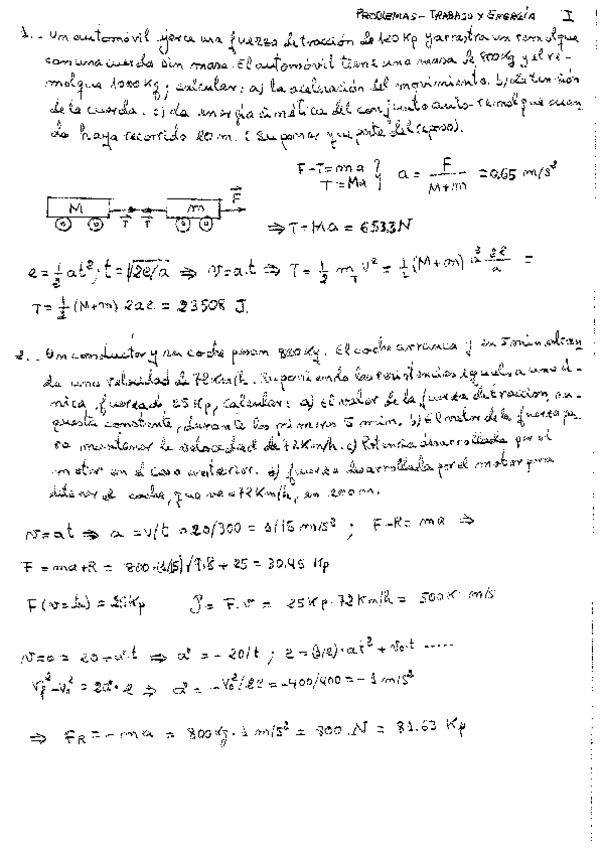 PROBLEMAS - TRABAJO Y ENERGÍA I
1.- Un automóvil ejerce una fuerza de tracción de 120 Kp y arrastra un remolque
con una cuerda sin masa. El automóvil tiene una masa de 800 Kg y el re-
molque 1000 Kg; calcular: a) la aceleración del movimiento. b) La tensión
de la cuerda. c) La energía cinética del conjunto auto-remolque cuan-
do haya recorrido 20 m. (Suponer que parte del reposo).
F-T=ma } a = F/(M+m) = 0.65 m/s²
T=Ma
M T T m F
⇒ T=Ma = 653.3 N
e = ½ at²; t=√2e/a ⇒ v=a.t ⇒ T = ½ m_T v² = ½ (M+m) a² 2e/a =
T = ½ (M+m) 2ae = 23508 J.
2.- Un conductor y su coche pesan 800 Kg. El coche arranca y en 5 min alcan
za una velocidad de 72 Km/h. Suponiendo las resistencias iguales a una ú-
nica fuerza de 25 Kp, calcular: a) El valor de la fuerza de tracción, su-
puesta constante, durante los primeros 5 min. b) El valor de la fuerza pa-
ra mantener la velocidad de 72 Km/h. c) Potencia desarrollada por el
motor en el caso anterior. d) fuerza desarrollada por el motor para
detener el coche, que va a 72 Km/h, en 200 m.
v=at ⇒ a = v/t = 20/300 = 1/15 m/s²; F-R= ma ⇒
F = ma+R = 800·(1/15)/9.8 + 25 = 30.45 Kp
F(v=cte) = 25 Kp P = F.v = 25 Kp · 72 Km/h = 500 K m/s
v=0 = 20 + a'.t ⇒ a' = - 20/t ; e = (1/2)·at² + v₀·t .....
v_f² - v₀² = 2a'·e ⇒ a' = -v₀²/2e = -400/400 = - 1 m/s²
⇒ F_R = - ma = 800 Kg · 1 m/s² = 800 N = 81.63 Kp